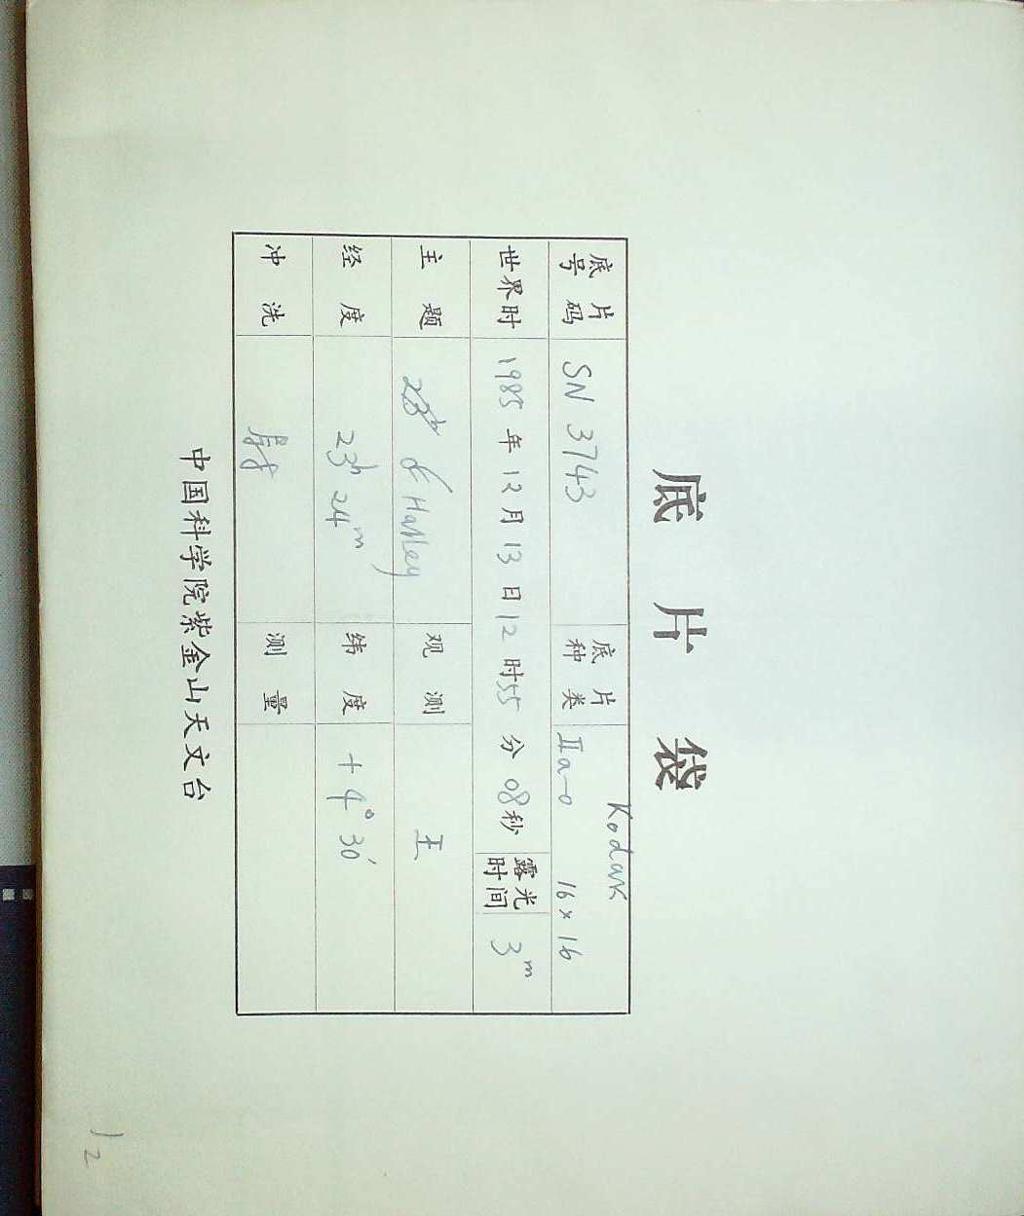 底片袋
底片号码 SN 3743 底片种类 IIa-O Kodak 16×16
世界时 1985年12月13日12时55分08秒 露光时间 3m
主题 Halley 观测 王
经度 23h 24m 纬度 +4° 30′
冲洗 测量
中国科学院紫金山天文台
12